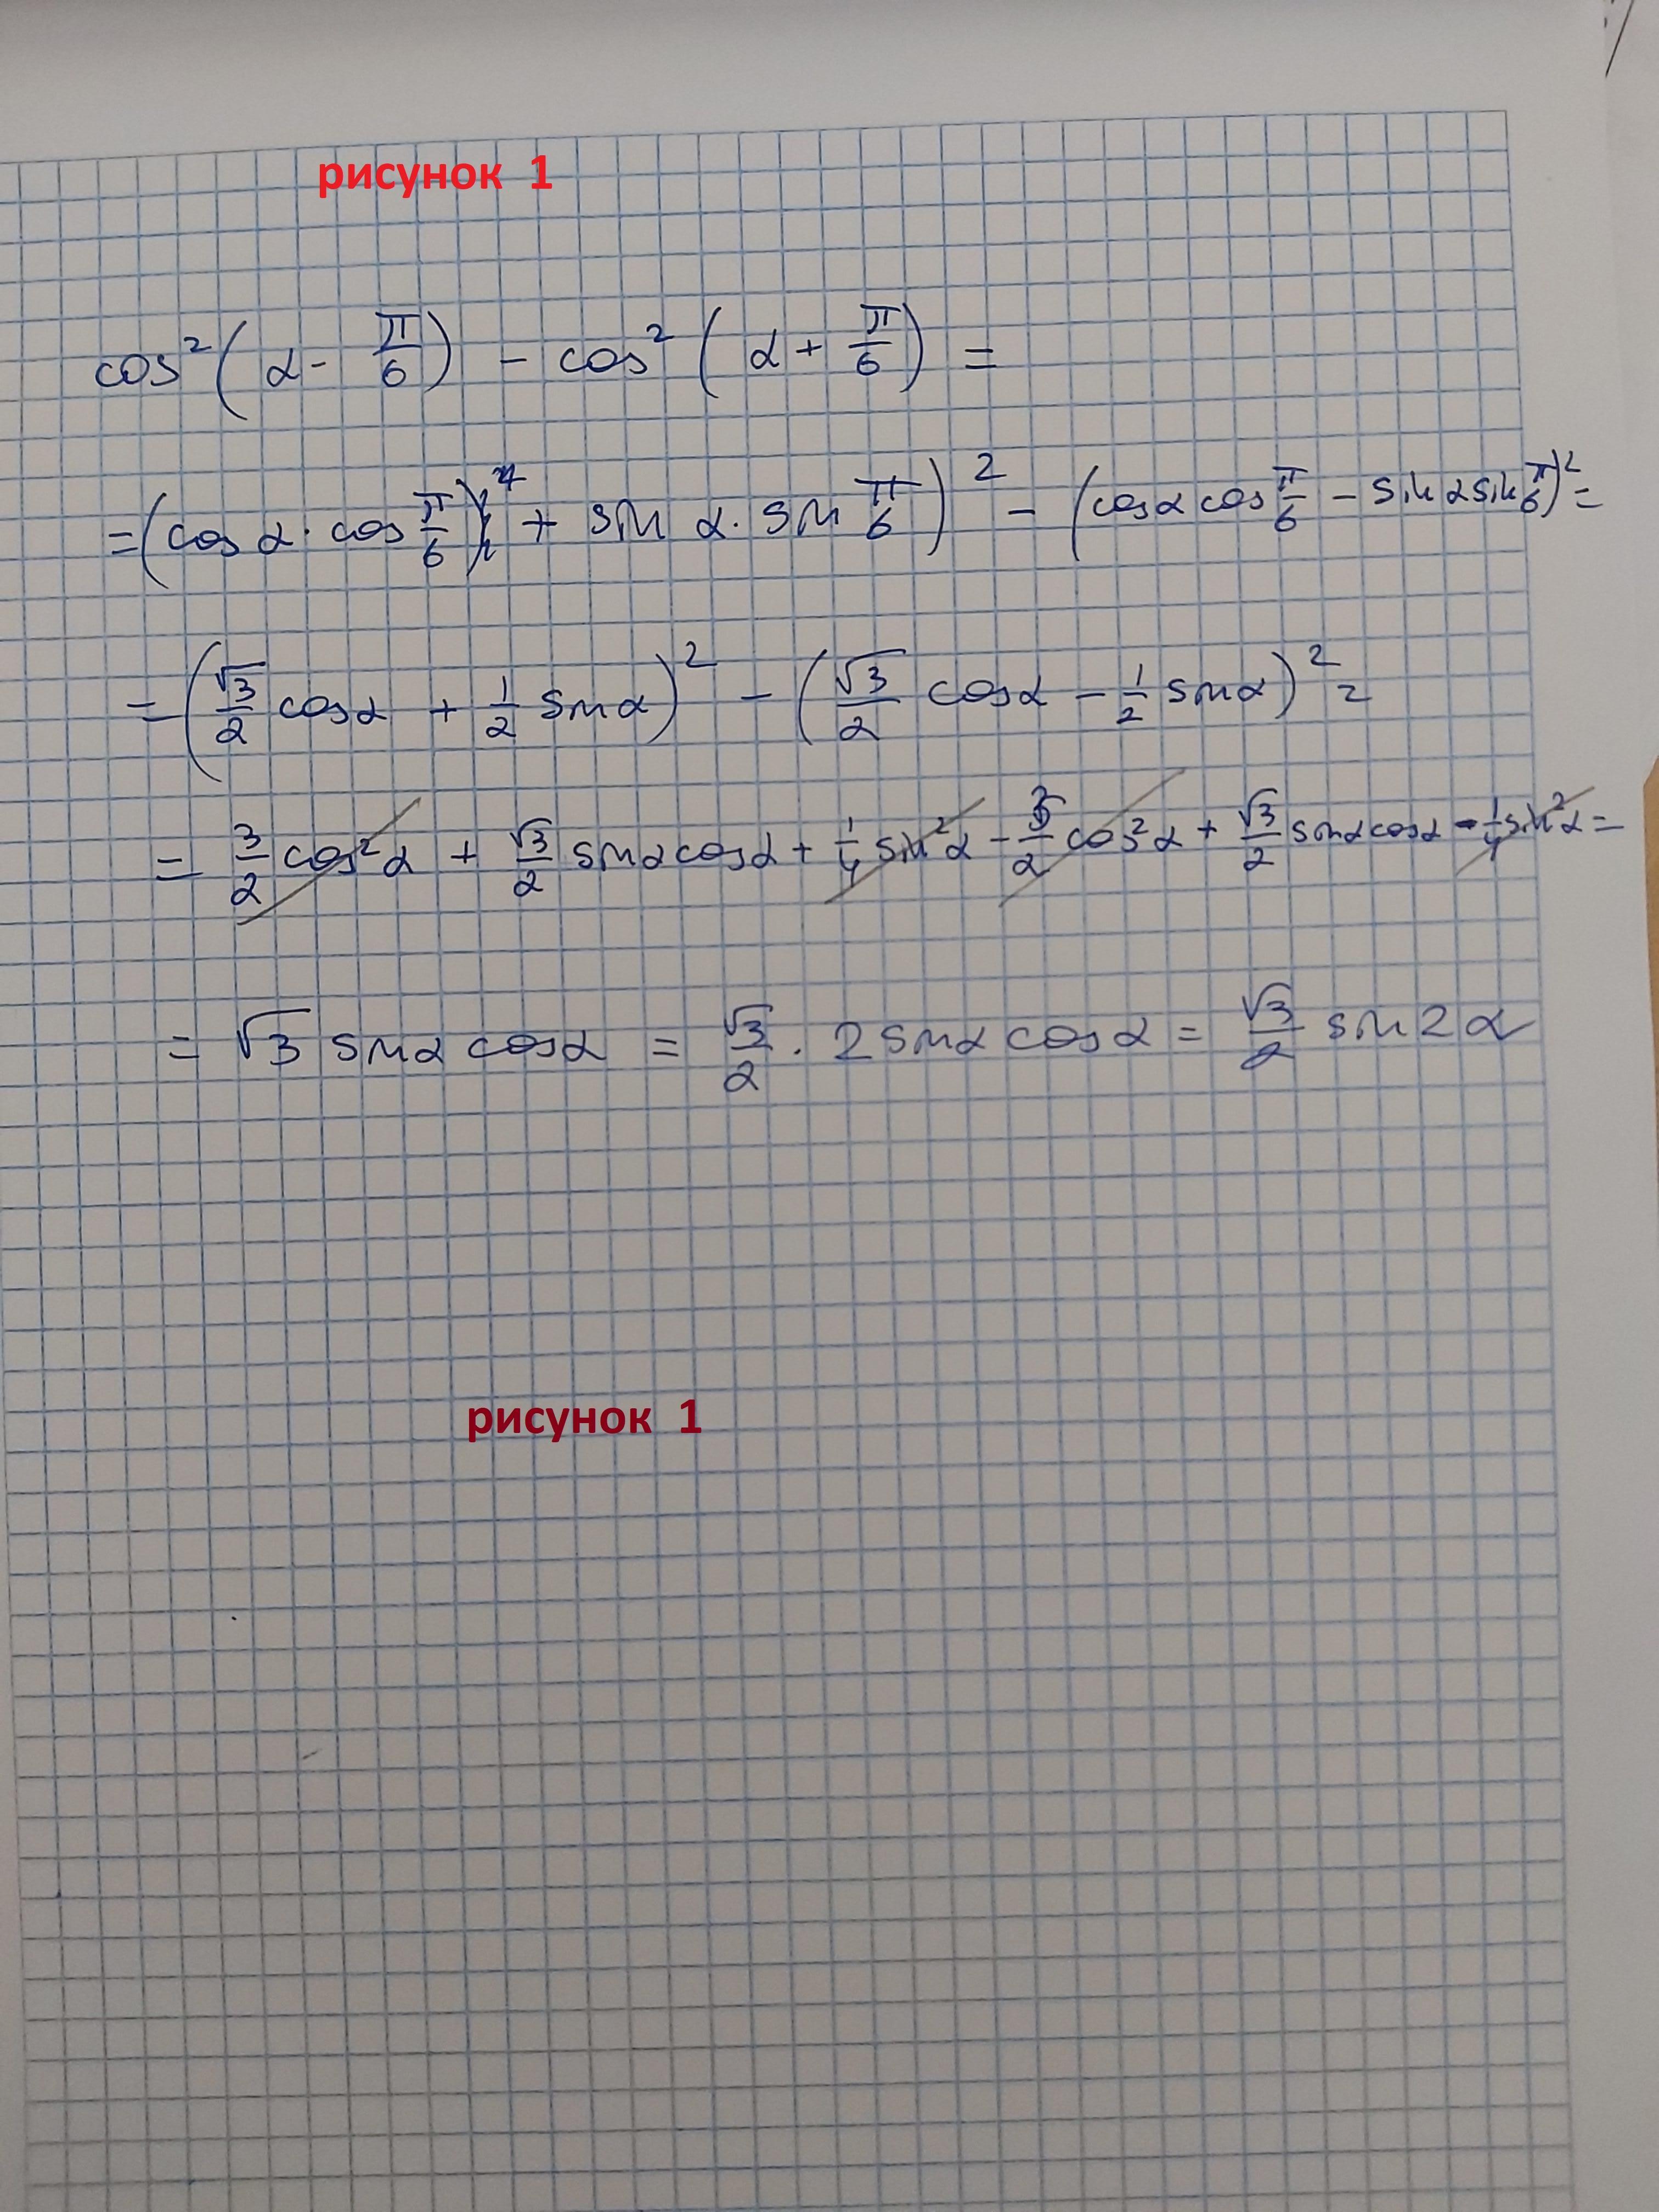 рисунок 1
cos²(α - π/6) - cos²(α + π/6) =
= (cos α · cos π/6 + sin α · sin π/6)² - (cosα cos π/6 - sin α sin π/6)² =
= (√3/2 cosα + 1/2 sinα)² - (√3/2 cosα - 1/2 sinα)² =
= 3/2 cos²α + √3/2 sinα cosα + 1/4 sin²α - 3/2 cos²α + √3/2 sinα cosα - 1/4 sin²α =
= √3 sinα cosα = √3/2 · 2 sinα cosα = √3/2 sin 2α
рисунок 1